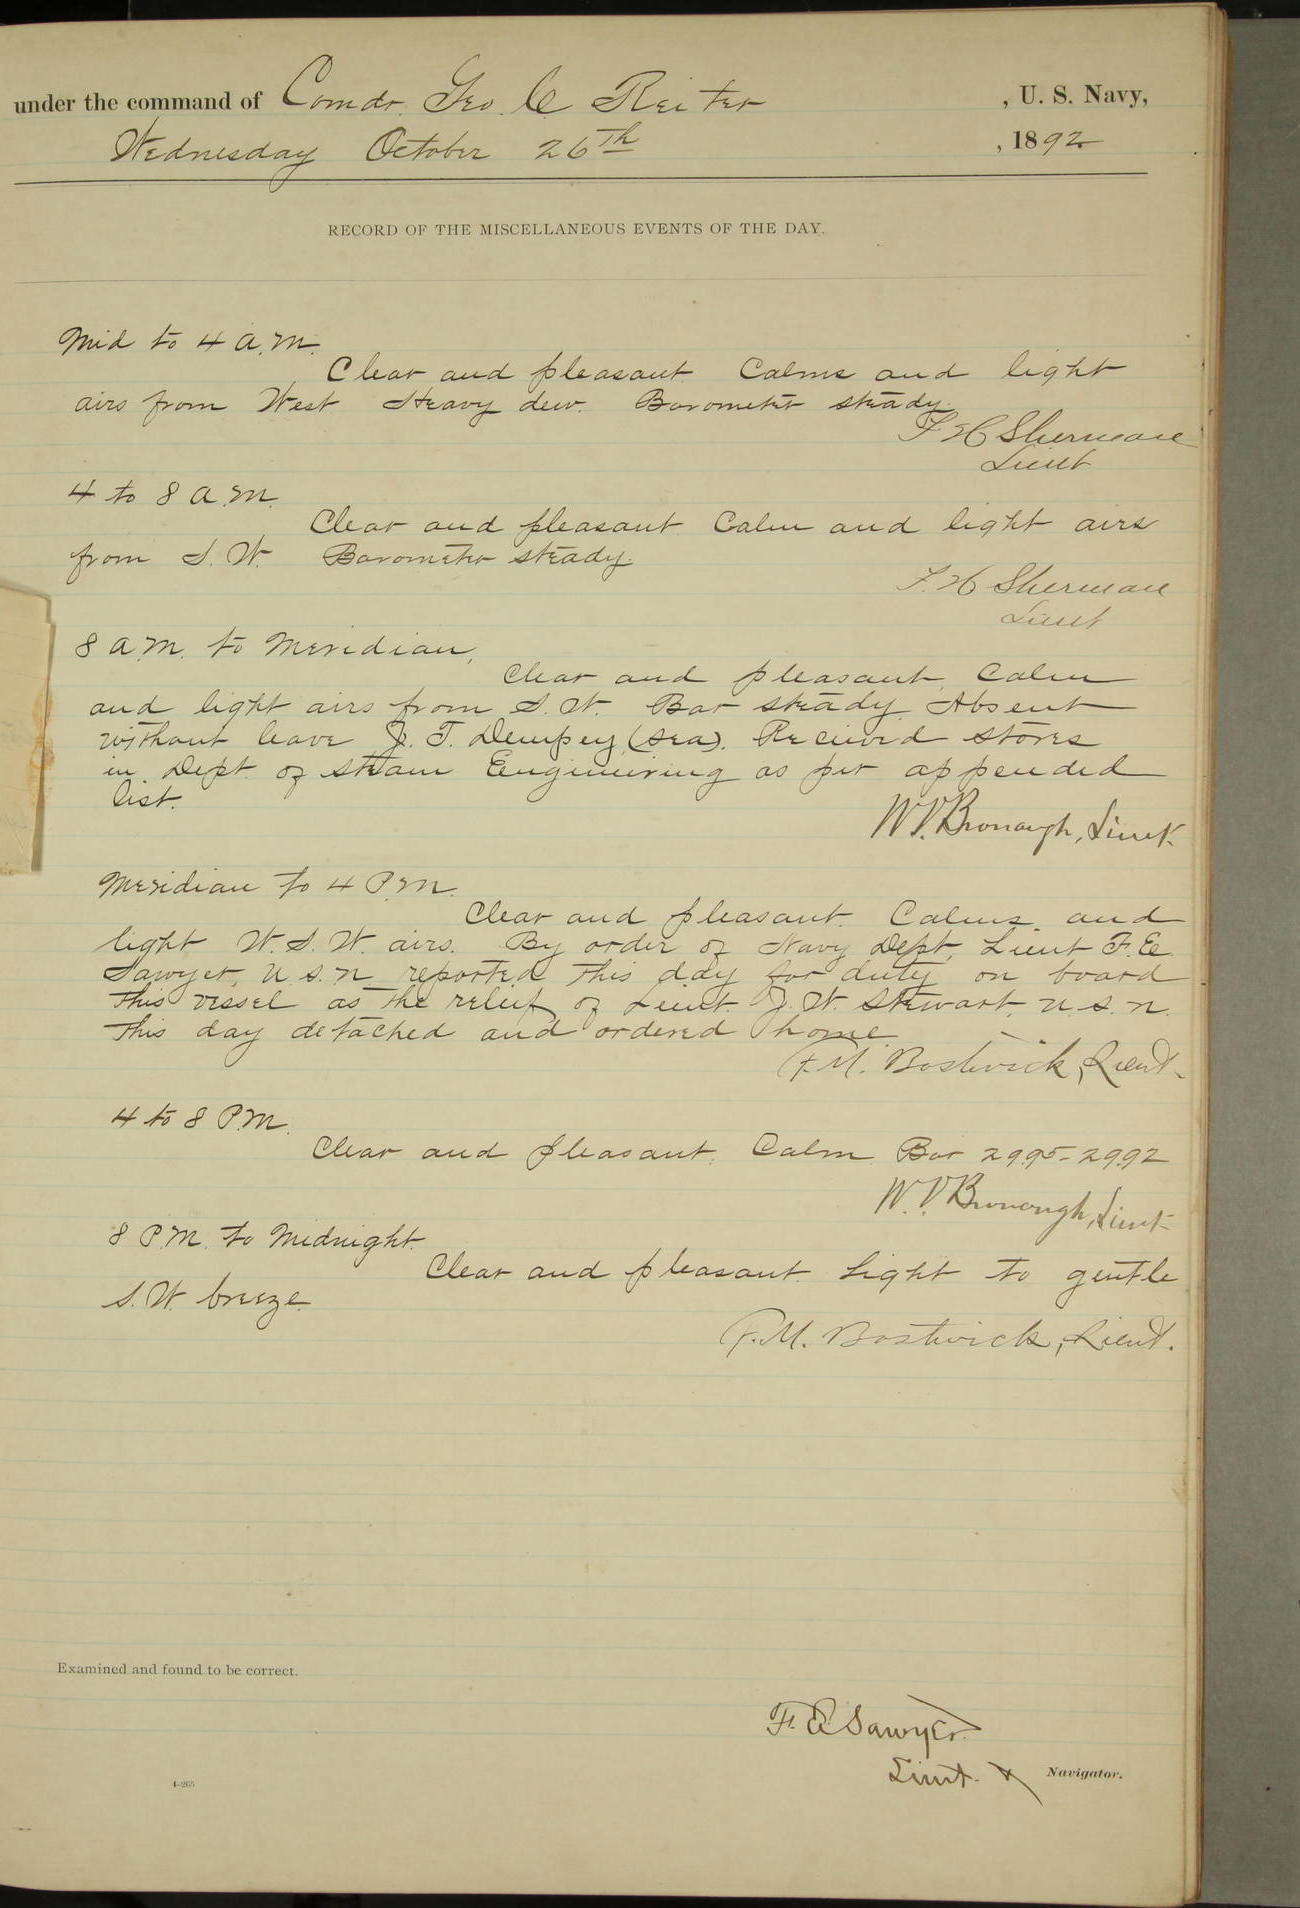 under the command of Comdr. Geo. C Reiter, U. S. Navy,
Wednesday October 26th, 1892
RECORD OF THE MISCELLANEOUS EVENTS OF THE DAY.
Mid to 4 A.M.
Clear and pleasant Calms and light
airs from West Heavy dew. Barometer steady.
F H Sherman
Lieut
4 to 8 A.M.
Clear and pleasant Calm and light airs
from S.W. Barometer steady.
F. H Sherman
Lieut
8 A.M. to Meridian,
Clear and pleasant, Calm
and light airs from S.W. Bar steady. Absent
without leave J. T. Dempsey, (Sea). Received stores
in Dept. of Steam Engineering as per appended
list.
W. V. Bronaugh, Lieut.
Meridian to 4 P.M.
Clear and pleasant. Calms and
light W.S.W. airs. By order of Navy Dept, Lieut F. E.
Sawyer, U.S.N. reported this day for duty on board
this vessel as the relief of Lieut. J. W. Stewart, U.S.N.
this day detached and ordered home.
F. M. Bostwick, Lieut.
4 to 8 P.M.
Clear and pleasant. Calm. Bar 29.95-29.92
W. V. Bronaugh, Lieut
8 P.M. to Midnight.
Clear and pleasant. Light to gentle
S.W. breeze.
F. M. Bostwick, Lieut.
Examined and found to be correct.
F. E Sawyer.
Lieut. & Navigator.
4-265